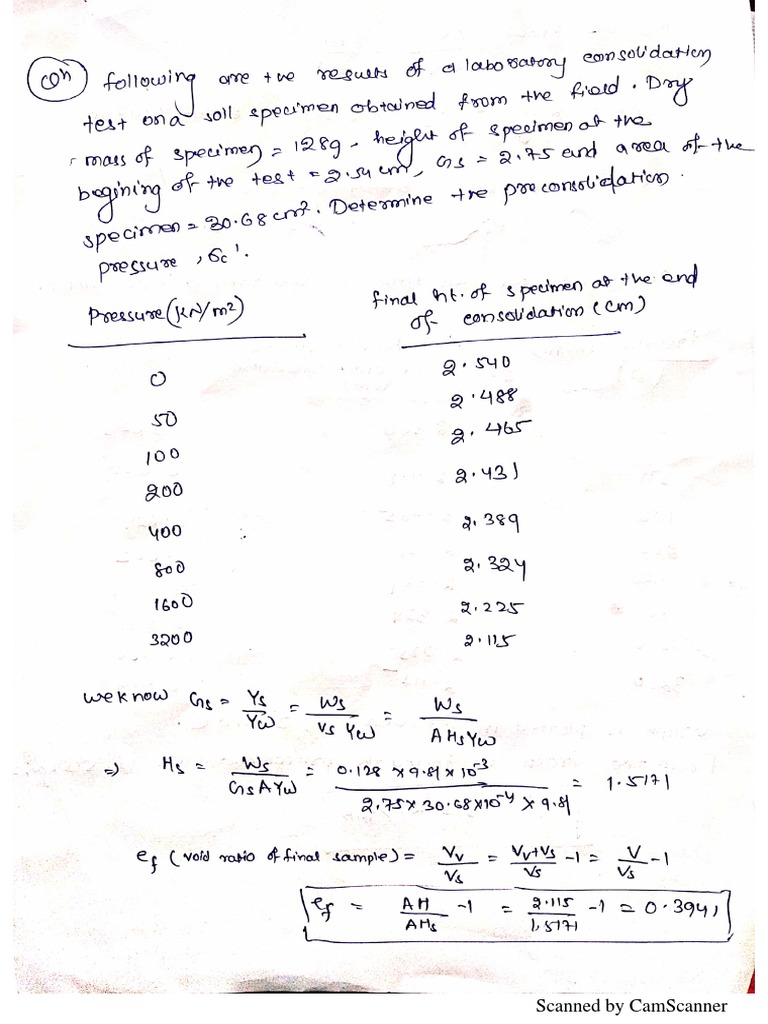 Qn following are the results of a laboratory consolidation
test on a soil specimen obtained from the field. Dry
mass of specimen = 128g. height of specimen at the
begining of the test = 2.54 cm, Gs = 2.75 and area of the
specimen = 30.68 cm². Determine the preconsolidation
pressure, σc'.
Pressure (kN/m²) final ht. of specimen at the end
of consolidation (cm)
0 2.540
50 2.488
100 2.465
200 2.431
400 2.389
800 2.324
1600 2.225
3200 2.115
we know Gs = γs/γω = Ws/Vs γω = Ws/A Hs γω
=) Hs = Ws/Gs A γω = 0.128 x 9.81 x 10⁻³/2.75 x 30.68 x 10⁻⁴ x 9.81 = 1.5171
ef (void ratio of final sample) = Vv/Vs = Vv+Vs/Vs -1 = V/Vs -1
ef = AH/AHs -1 = 2.115/1.5171 -1 = 0.3941
Scanned by CamScanner